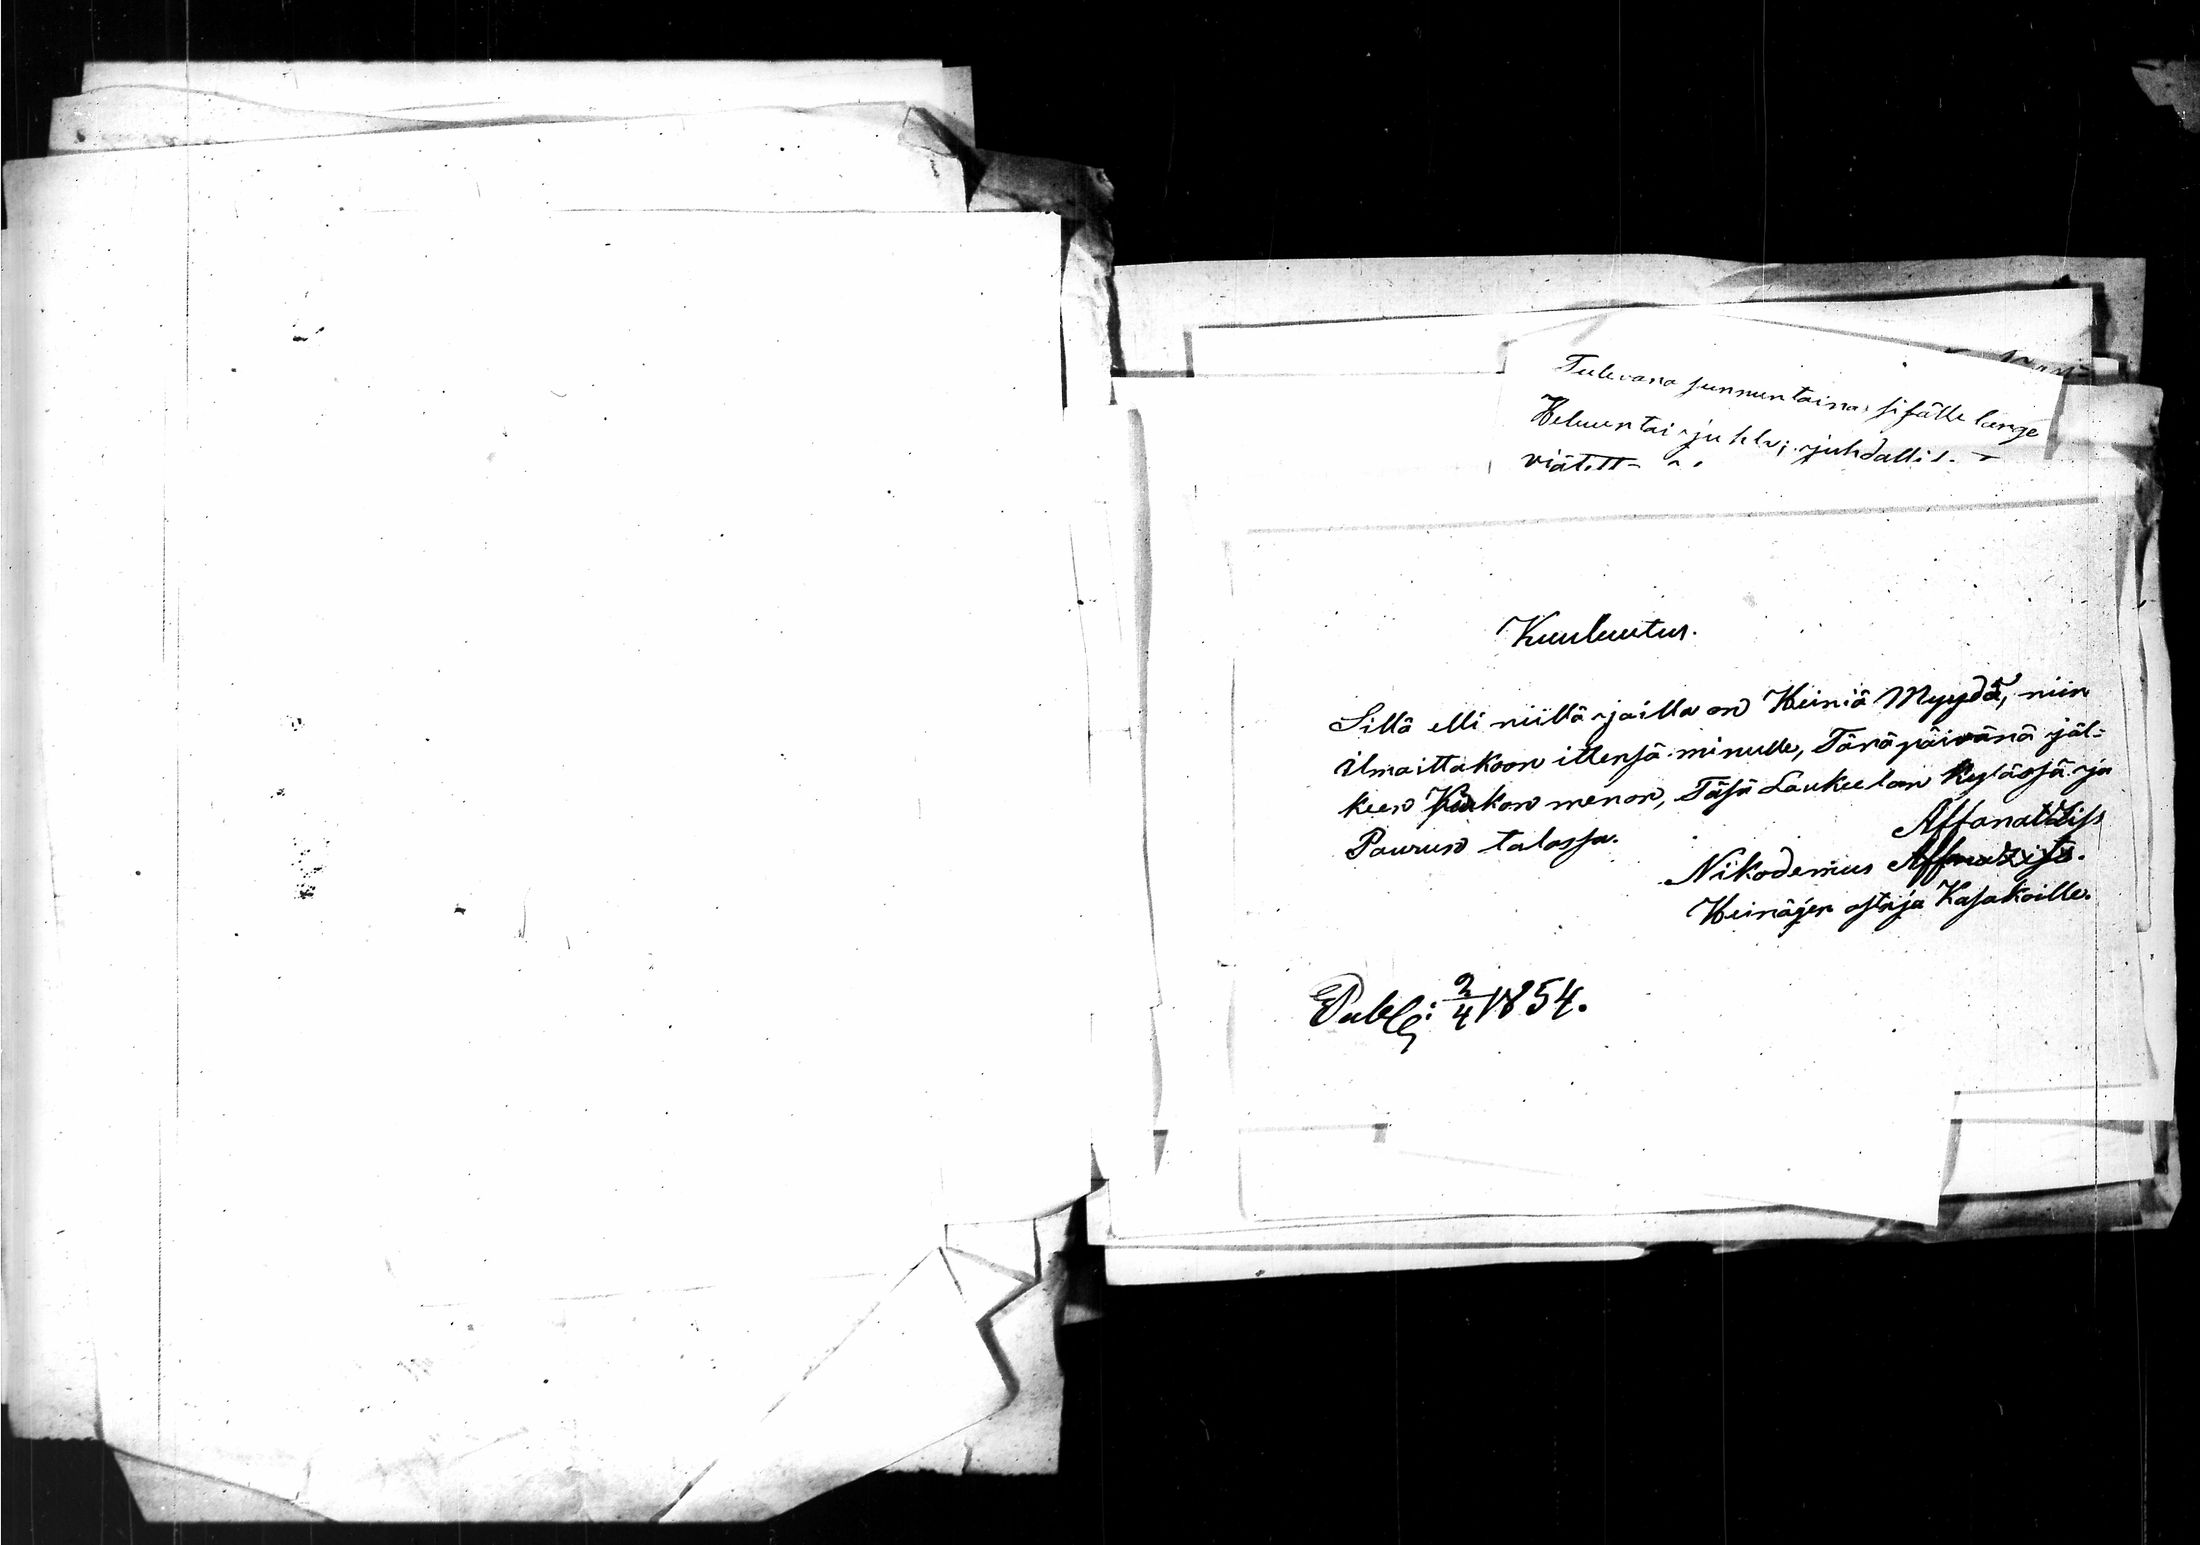 Tulevana sunnuntaina
Heluuntai juhla; juhdallis
Kuuluutus.
Sillä elli niillä jailla on Heiniä Myydä, niin
ilmaittakoon ittensä minulle, Tänäpäivänä jäl=
keen Kirkon menon, Täsä Laukeelan Kylässä ja
Paurun talossa.
Affonatziss
Nikodemius
Heinäjen ostaja Kasakoille.
Publ: 2/4 1854.